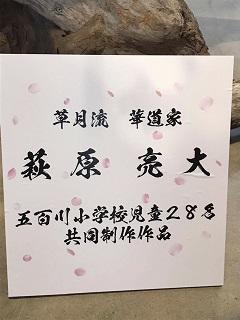 草月流　華道家
萩原　亮大
五百川小学校児童２８名
共同制作作品